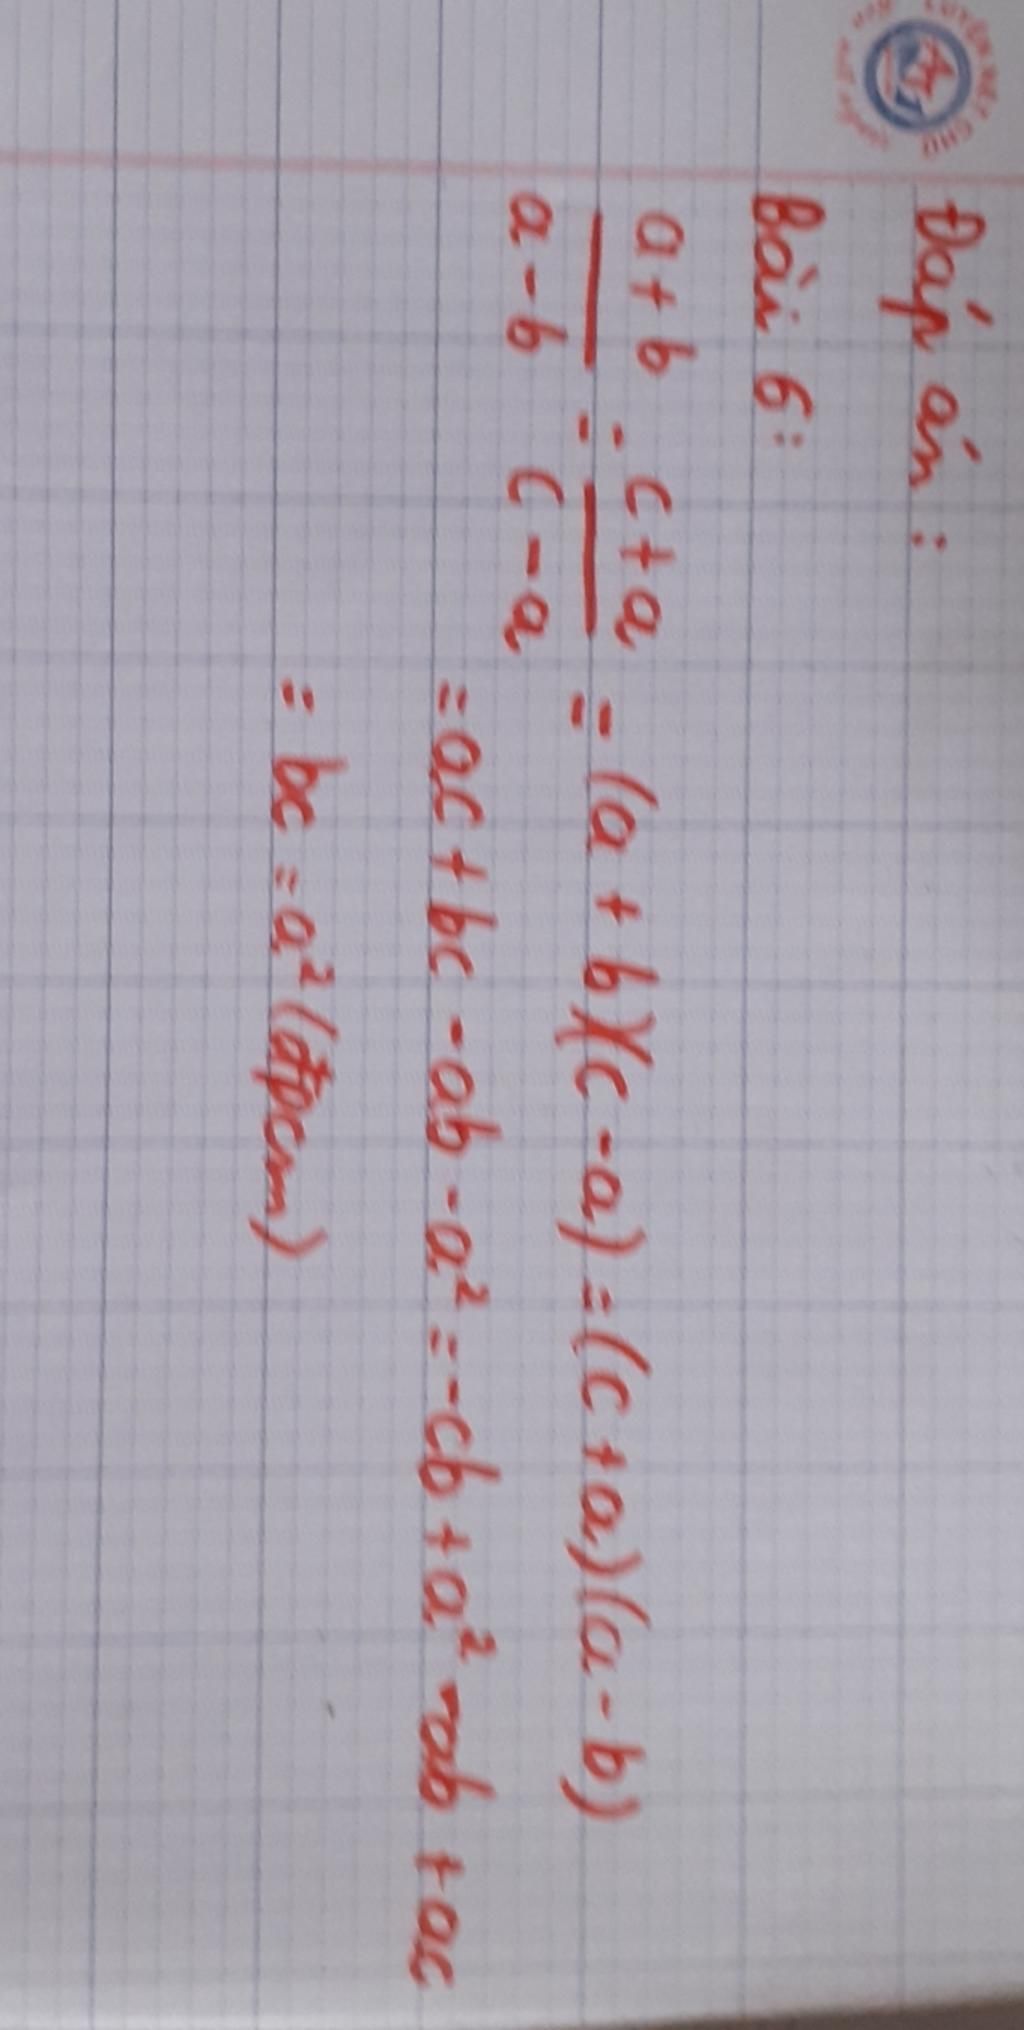 Đáp án:
Bài 6:
a + b / a - b = c + a / c - a = (a + b)(c - a) = (c + a)(a - b)
= ac + bc - ab - a² = -cb + a² - ab + ac
= bc = a² (đpcm)